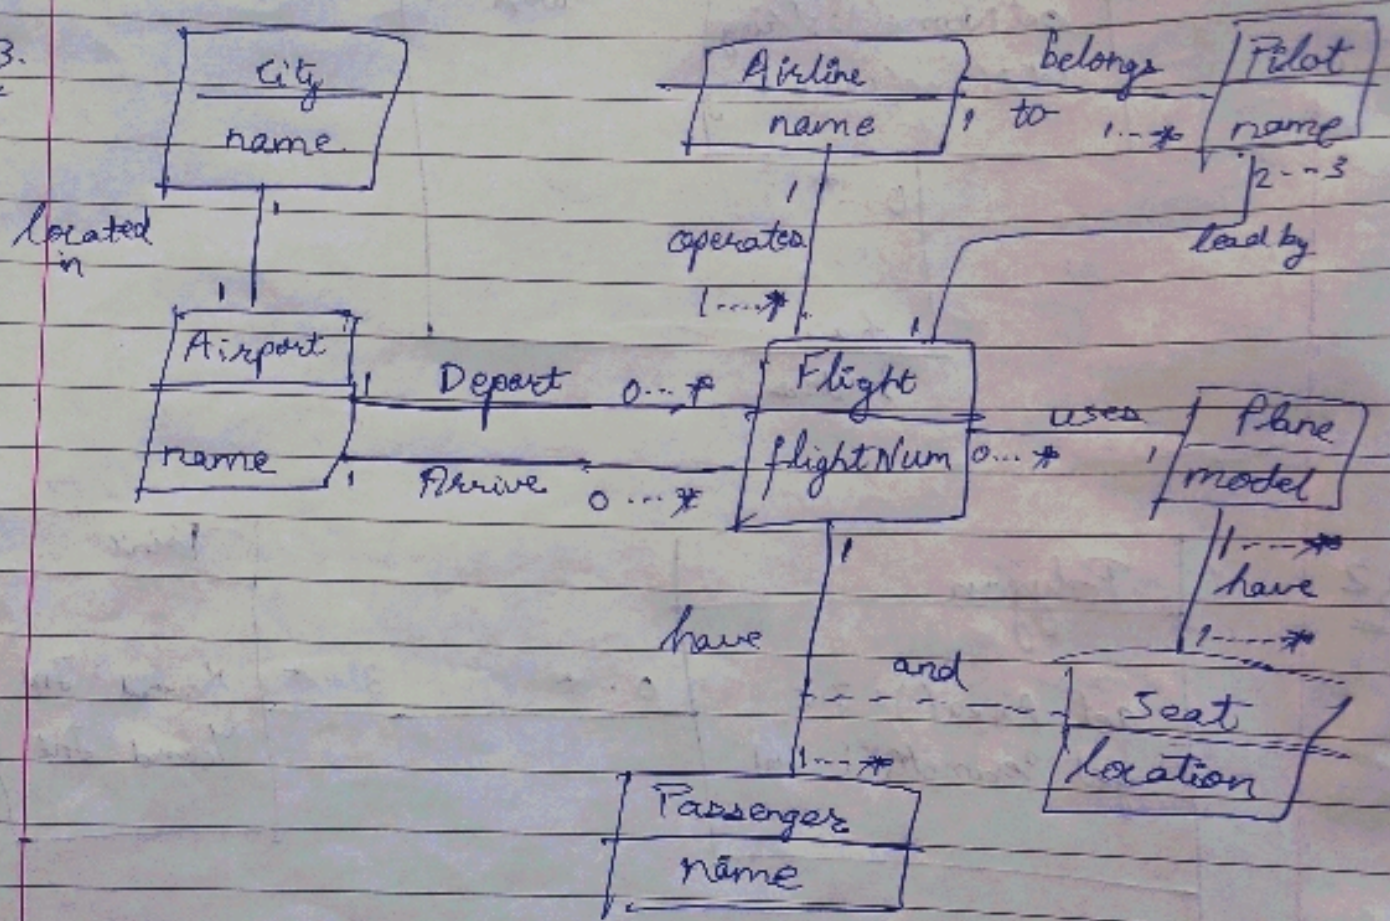 3.
City
name
located
in
1
1
Airport
name
Airline
name
belongs
to
1
1...*
Pilot
name
2...3
lead by
1
operates
1....*
1
1
Depart
0...*
1
Arrive
0...*
Flight
flightNum
uses
0...*
1
Plane
model
1....*
have
1....*
1
have
and
Seat
location
1....*
Passenger
name